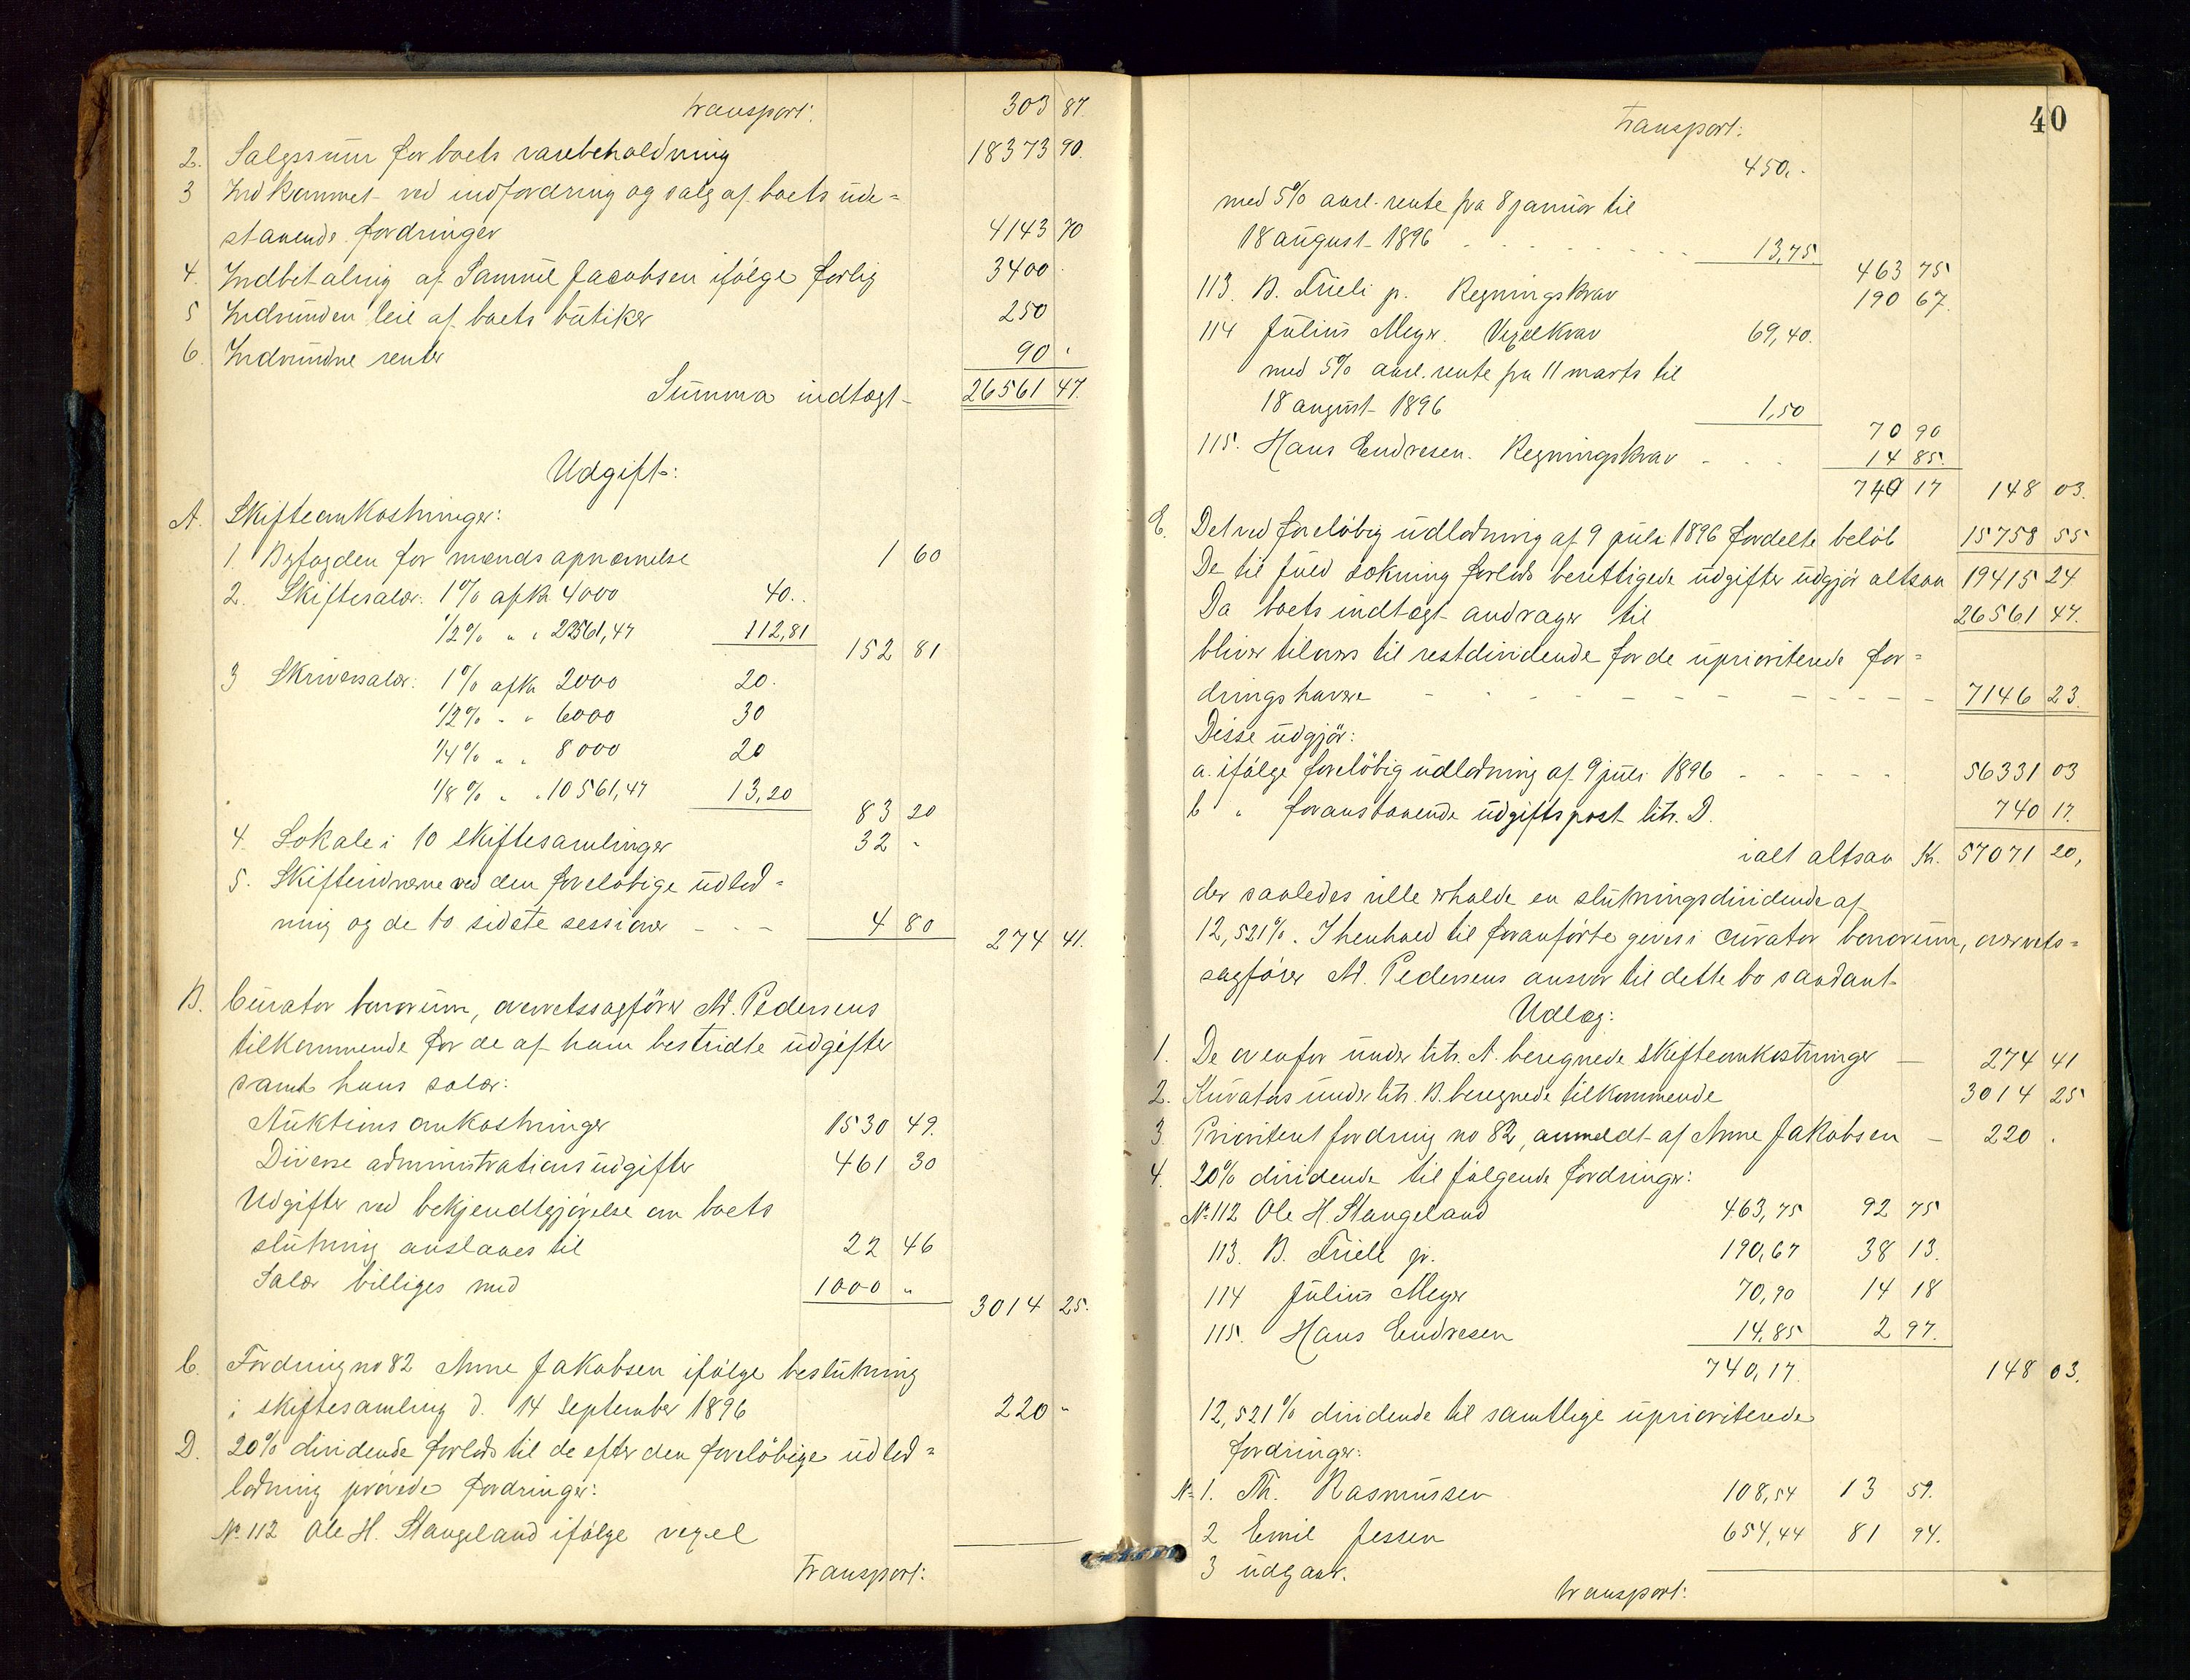 transport: 303 87.
2. Salgssum for boets varebeholdning 18373 90.
3 Indkommet ved indfordring og salg af boets ude=
staaende fordringer 4143 70
4. Indbetaling af Samuel Jacobsen ifølge forlig 3400 .
5 Indvunden leie af boets butiker 250
6. Indvundne renter 90 .
Summa indtægt 26561 47.
Udgift:
A. Skifteomkostninger:
1. Byfogden for mænds opnævnelse 1 60
2. Skiftesalær: 1% af kr 4000 40..
1/2% " " 22561,47 112,81
152 81
3 Skriversalær: 1% af kr 2000 20.
1/2% " " 6000 30
1/4% " " 8000 20
1/8% " " 10561,47 13,20
83 20
4. Lokale i 10 skiftesamlinger 32 "
5. Skiftevidnerne ved den foreløbige udlod=
ning og de to sidste sessioner - - - 4 80
274 41.
B. Curator bonorum, overretssagfører Ad. Pedersens
tilkommende for de af ham bestridte udgifter
samt hans salær:
Auktionsomkostninger 1530 49.
Diverse administrationsudgifter 461 30
Udgifter ved bekjendtgjørelse om boets
slutning anslaaes til 22 46
Salær billiges med 1000 "
3014 25.
C. Fordring no 82 Anne Jakobsen ifølge beslutning
i skiftesamling d. 14 september 1896 220 "
D. 20% dividende forlods til de efter den foreløbige udlod=
lodning prøvede fordringer:
No 112 Ole H. Stangeland ifølge vexel
Transport:
40
Transport:
450.-
med 5% aarl. rente fra 8 januar til
18 august 1896 - - - - - - 13,75
463 75
113. B. Friele jr. Regningskrav 190 67.
114 Julius Meyer. Vexelkrav 69,40.
med 5% aarl. rente fra 11 marts til
18 august 1896 1,50
70 90
115. Hans Endresen. Regningskrav - - - 14 85.
740 17 148 03.
E. Det ved foreløbig udlodning af 9 juli 1896 fordelte beløb 15758 55
De til fuld dækning forlods berettigede udgifter udgjør altsaa 19415 24
Da boets indtægt andrager til 26561 47.
bliver tilovers til restdividende for de uprioriterede for=
dringshavere - - - - - - - - - - 7146 23.
Disse udgjør:
a. ifølge foreløbig udlodning af 9 juli 1896 - - - - - 56331 03
b " foranstaaende udgiftspost litr. D. 740 17.
ialt altsaa Kr. 57071 20,
der saaledes ville erholde en slutningsdividende af
12,521%. I henhold til foranførte gives i curator bonorum, overrets=
sagfører Ad. Pedersens ansvar til dette bo saadant
Udlæg:
1. De ovenfor under litr. A. beregnede skifteomkostninger — 274 41
2. Kurators under litr. B. beregnede tilkommende 3014 25
3. Prioriteret fordring no 82, anmeldt af Anne Jakobsen — 220 .
4. 20% dividende til følgende fordringer:
No 112 Ole H. Stangeland 463,75 92 75
113. B. Friele jr. 190,67 38 13.
114 Julius Meyer 70,90 14 18
115. Hans Endresen 14,85 2 97.
740,17. 148 03.
12,521% dividende til samtlige uprioriterede
fordringer:
No 1. Th. Rasmussen 108,54 13 59.
2 Emil Jessen 654,44 81 94.
3 udgaar.
transport: